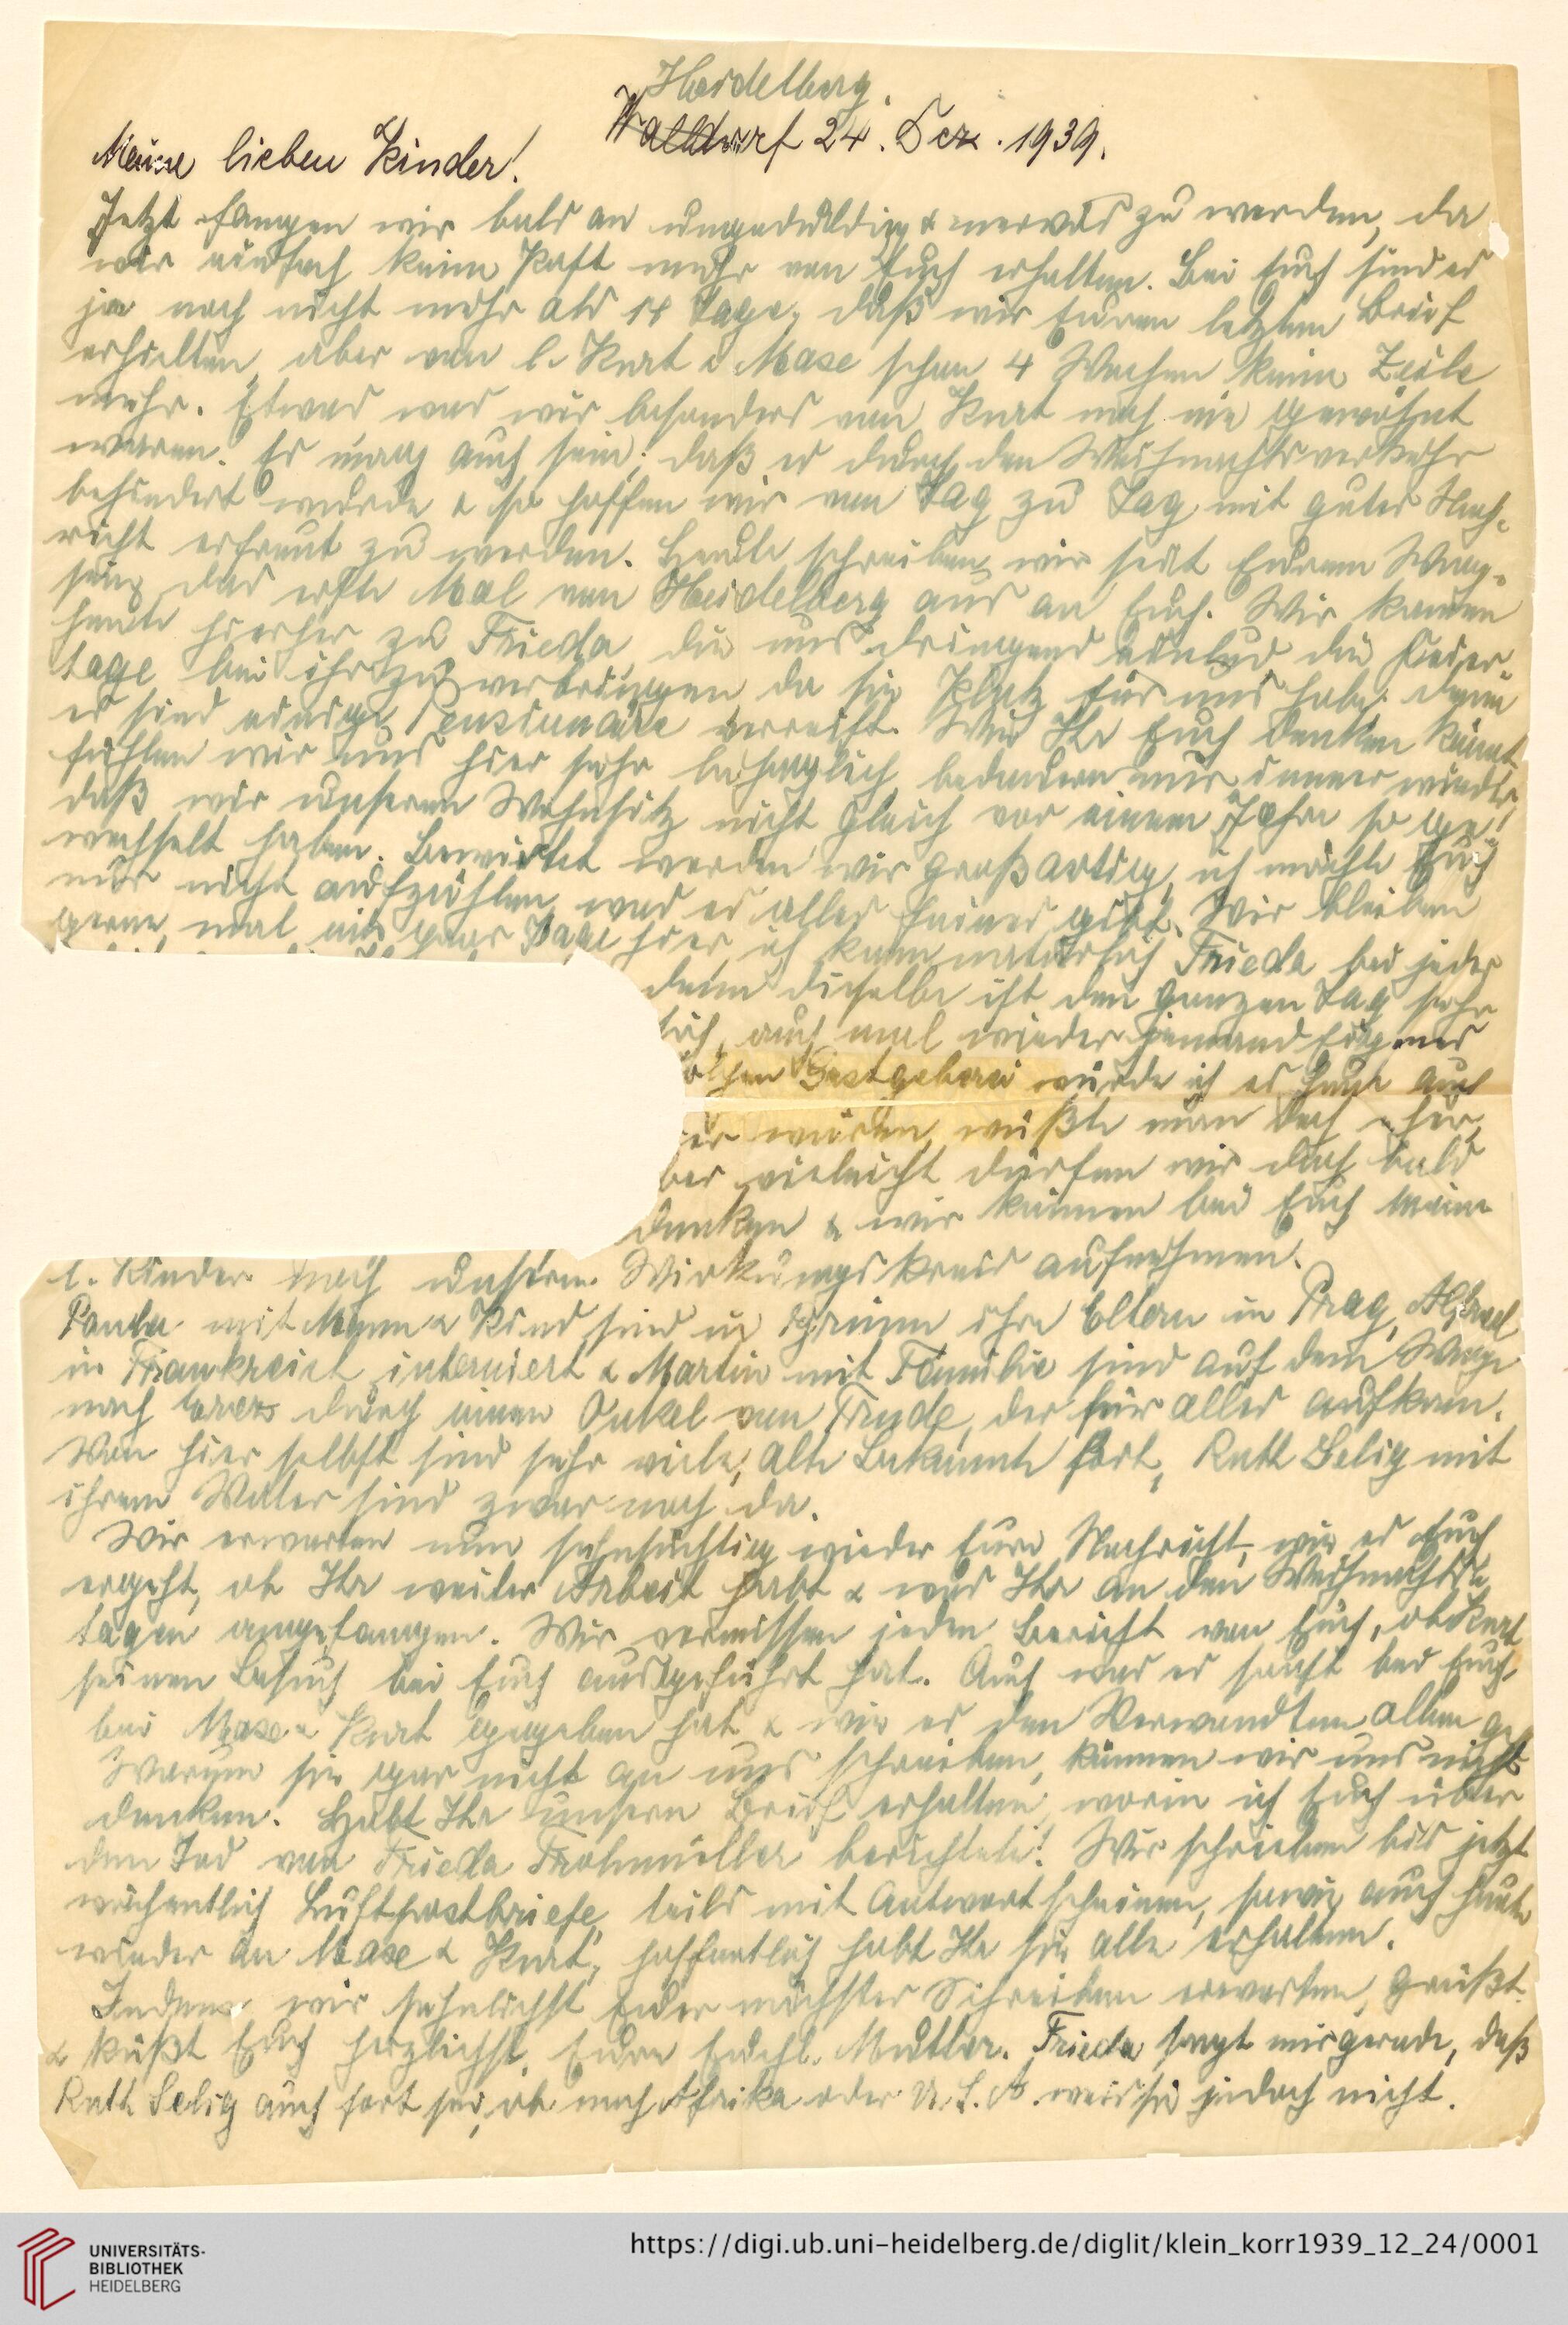 Heidelberg.
Walldorf 24. Dez. 1939.
Meine lieben Kinder!
Jetzt fangen wir bald an ungeduldig & nervös zu werden, da
wir einfach keine Post mehr von Euch erhalten. Bei Euch sind es
ja noch nicht mehr als 14 Tage, daß wir Euren letzten Brief
erhielten, aber von l. Kurt & Mase schon 4 Wochen keine Zeile
mehr. Etwas was wir besonders von Kurt noch nie gewöhnt
waren. Es mag auch sein, daß es durch den Weihnachtsverkehr
behindert wurde & so hoffen wir von Tag zu Tag mit guter Nach-
richt erfreut zu werden. Heute schreiben wir seit Eurem Weg-
sein das erste Mal von Heidelberg aus an Euch. Wir kamen
heute hierher zu Frieda, die uns dringend einlud die Feier-
tage bei ihr zu verbringen da sie Platz für uns habe, denn
es sind einige Pensionäre verreist. Wie Ihr Euch denken könnt
fühlen wir uns hier sehr behaglich, bedauern nur immer wieder,
daß wir unseren Wohnsitz nicht gleich vor einem Jahr so ge-
wechselt haben. Bewirtet werden wir großartig, ich möchte Euch
nur nicht aufzählen, was es alles feines gibt. Wir bleiben
gerne mal ein paar Tage hier, ich kann natürlich Frieda bei jeder
denn dieselbe ist den ganzen Tag sehr
sich, auch mal wieder jemand Eigenes
olchen Gastgeberei würde ich es heute auch
er wären, wüßte man doch eher,
ber vieleicht dürfen wir doch bald
denken & wir können bei Euch meine
l. Kinder noch unseren Wirkungskreis aufnehmen.
Paula mit Mann & Kind sind in Brünn ihre Eltern in Prag, Alfred
in Frankreich interniert & Martin mit Familie sind auf dem Wege
nach durch einen Onkel von Trude, der für alles aufkam.
Von hier selbst sind sehr viele, alte Bekannte fort, Ruth Selig mit
ihrem Vater sind zwar noch da.
Wir erwarten nun sehnsüchtig wieder Eure Nachricht, wie es Euch
ergeht, ob Ihr weiter Arbeit habt & was Ihr an den Weihnachts-
tagen angefangen. Wir vermissen jeden Bericht von Euch, ob Kurt
seinen Besuch bei Euch ausgeführt hat. Auch was es sonst bei Euch,
bei Mase & Kurt gegeben hat & wie es den Verwandten allen geht
Warum sie gar nicht an uns schreiben, können wir uns nicht
denken. Habt Ihr unsern Brief erhalten, worin ich Euch über
den Tod von Frieda Frohmüller berichtete! Wir schrieben bis jetzt
wöchentlich Luftpostbriefe, teils mit Antwortscheinen, sowie auch heute
wieder an Mase & Kurt, hoffentlich habt Ihr sie alle erhalten.
Indem wir sehnlichst Euer nächstes Schreiben erwarten, grüßt
& küßt Euch herzlichst Eure Mutter. Frieda sagt mir gerade, daß
Ruth Selig auch fort sei, ob nach Afrika oder U.S.A. weis sie jedoch nicht.
UNIVERSITÄTS-
BIBLIOTHEK
HEIDELBERG
https://digi.ub.uni-heidelberg.de/diglit/klein_korr1939_12_24/0001